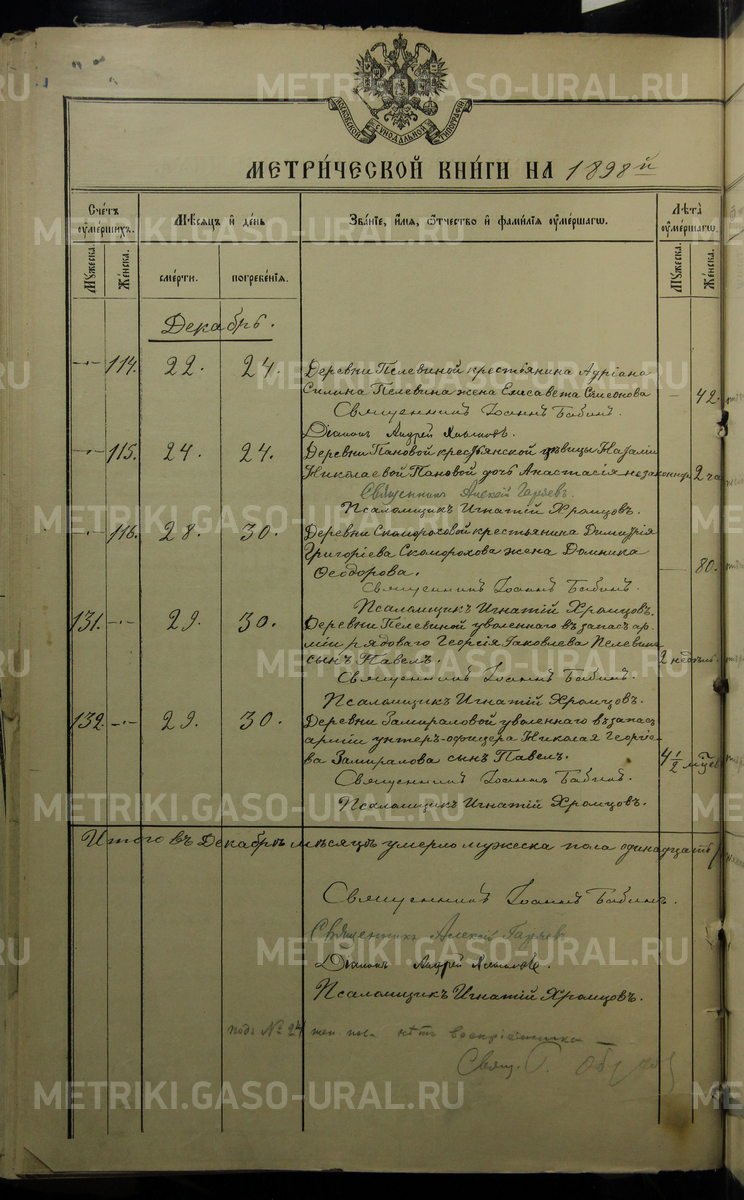 МОСКОВСКОЙ СѴНОДАЛЬНОЙ ТИПОГРАФІИ
МЕТРИ́ЧЕСКОЙ КНИ́ГИ НА 1898й
Сче́тъ оуме́ршихъ.
Мѣ́сяцъ и де́нь
Зва́нїе, и́мя, ѻ́тчество и фами́лїя оуме́ршагѡ.
Лѣта̀ оуме́ршагѡ.
Мужеска.
Же́нска.
сме́рти.
погребе́нїя.
Мужеска.
Же́нска.
Декабрь.
114. 22. 24. Деревни Пелевиной крестьянина Адріана
Силина Пелевина жена Елисавета Симеонова 42.
Священникъ Іоаннъ Бабинъ.
Діаконъ Андрей
115. 24. 24. Деревни Пановой крестьянской дѣвицы Наталіи
Николаевой Пановой дочь Анастасія незаконнор 2 ча
Священникъ Алексій Гаряев.
Псаломщикъ Игнатій Хромцовъ.
116. 28. 30. Деревни Скомороховой крестьянина Димитрія
Григоріева Скоморохова жена Домника
Ѳеодорова. 80.
Священникъ Іоаннъ Бабинъ.
Псаломщикъ Игнатій Хромцовъ.
131. 29. 30. Деревни Пелевиной уволеннаго въ запасъ ар-
міи рядоваго Георгія Іаковлева Пелевина
сынъ Павелъ. 2 недѣль
Священникъ Іоаннъ Бабинъ.
Псаломщикъ Игнатій Хромцовъ.
132. 29. 30. Деревни Замираловой уволеннаго въ запасъ
арміи унтеръ-офицера Николая Георгіе-
ва Замиралова сынъ Павелъ. 4 1/2
Священникъ Іоаннъ Бабинъ.
Псаломщикъ Игнатій Хромцовъ.
Итого въ Декабрѣ мѣсяцѣ умерло мужеска пола одинадцать
Священникъ Іоаннъ Бабинъ.
Священникъ Алексій Гаряев
Діаконъ Андрей
Псаломщикъ Игнатій Хромцовъ.
подъ № 24 жен. пола нѣтъ воспріемника
Свящ.
METRIKI.GASO-URAL.RU